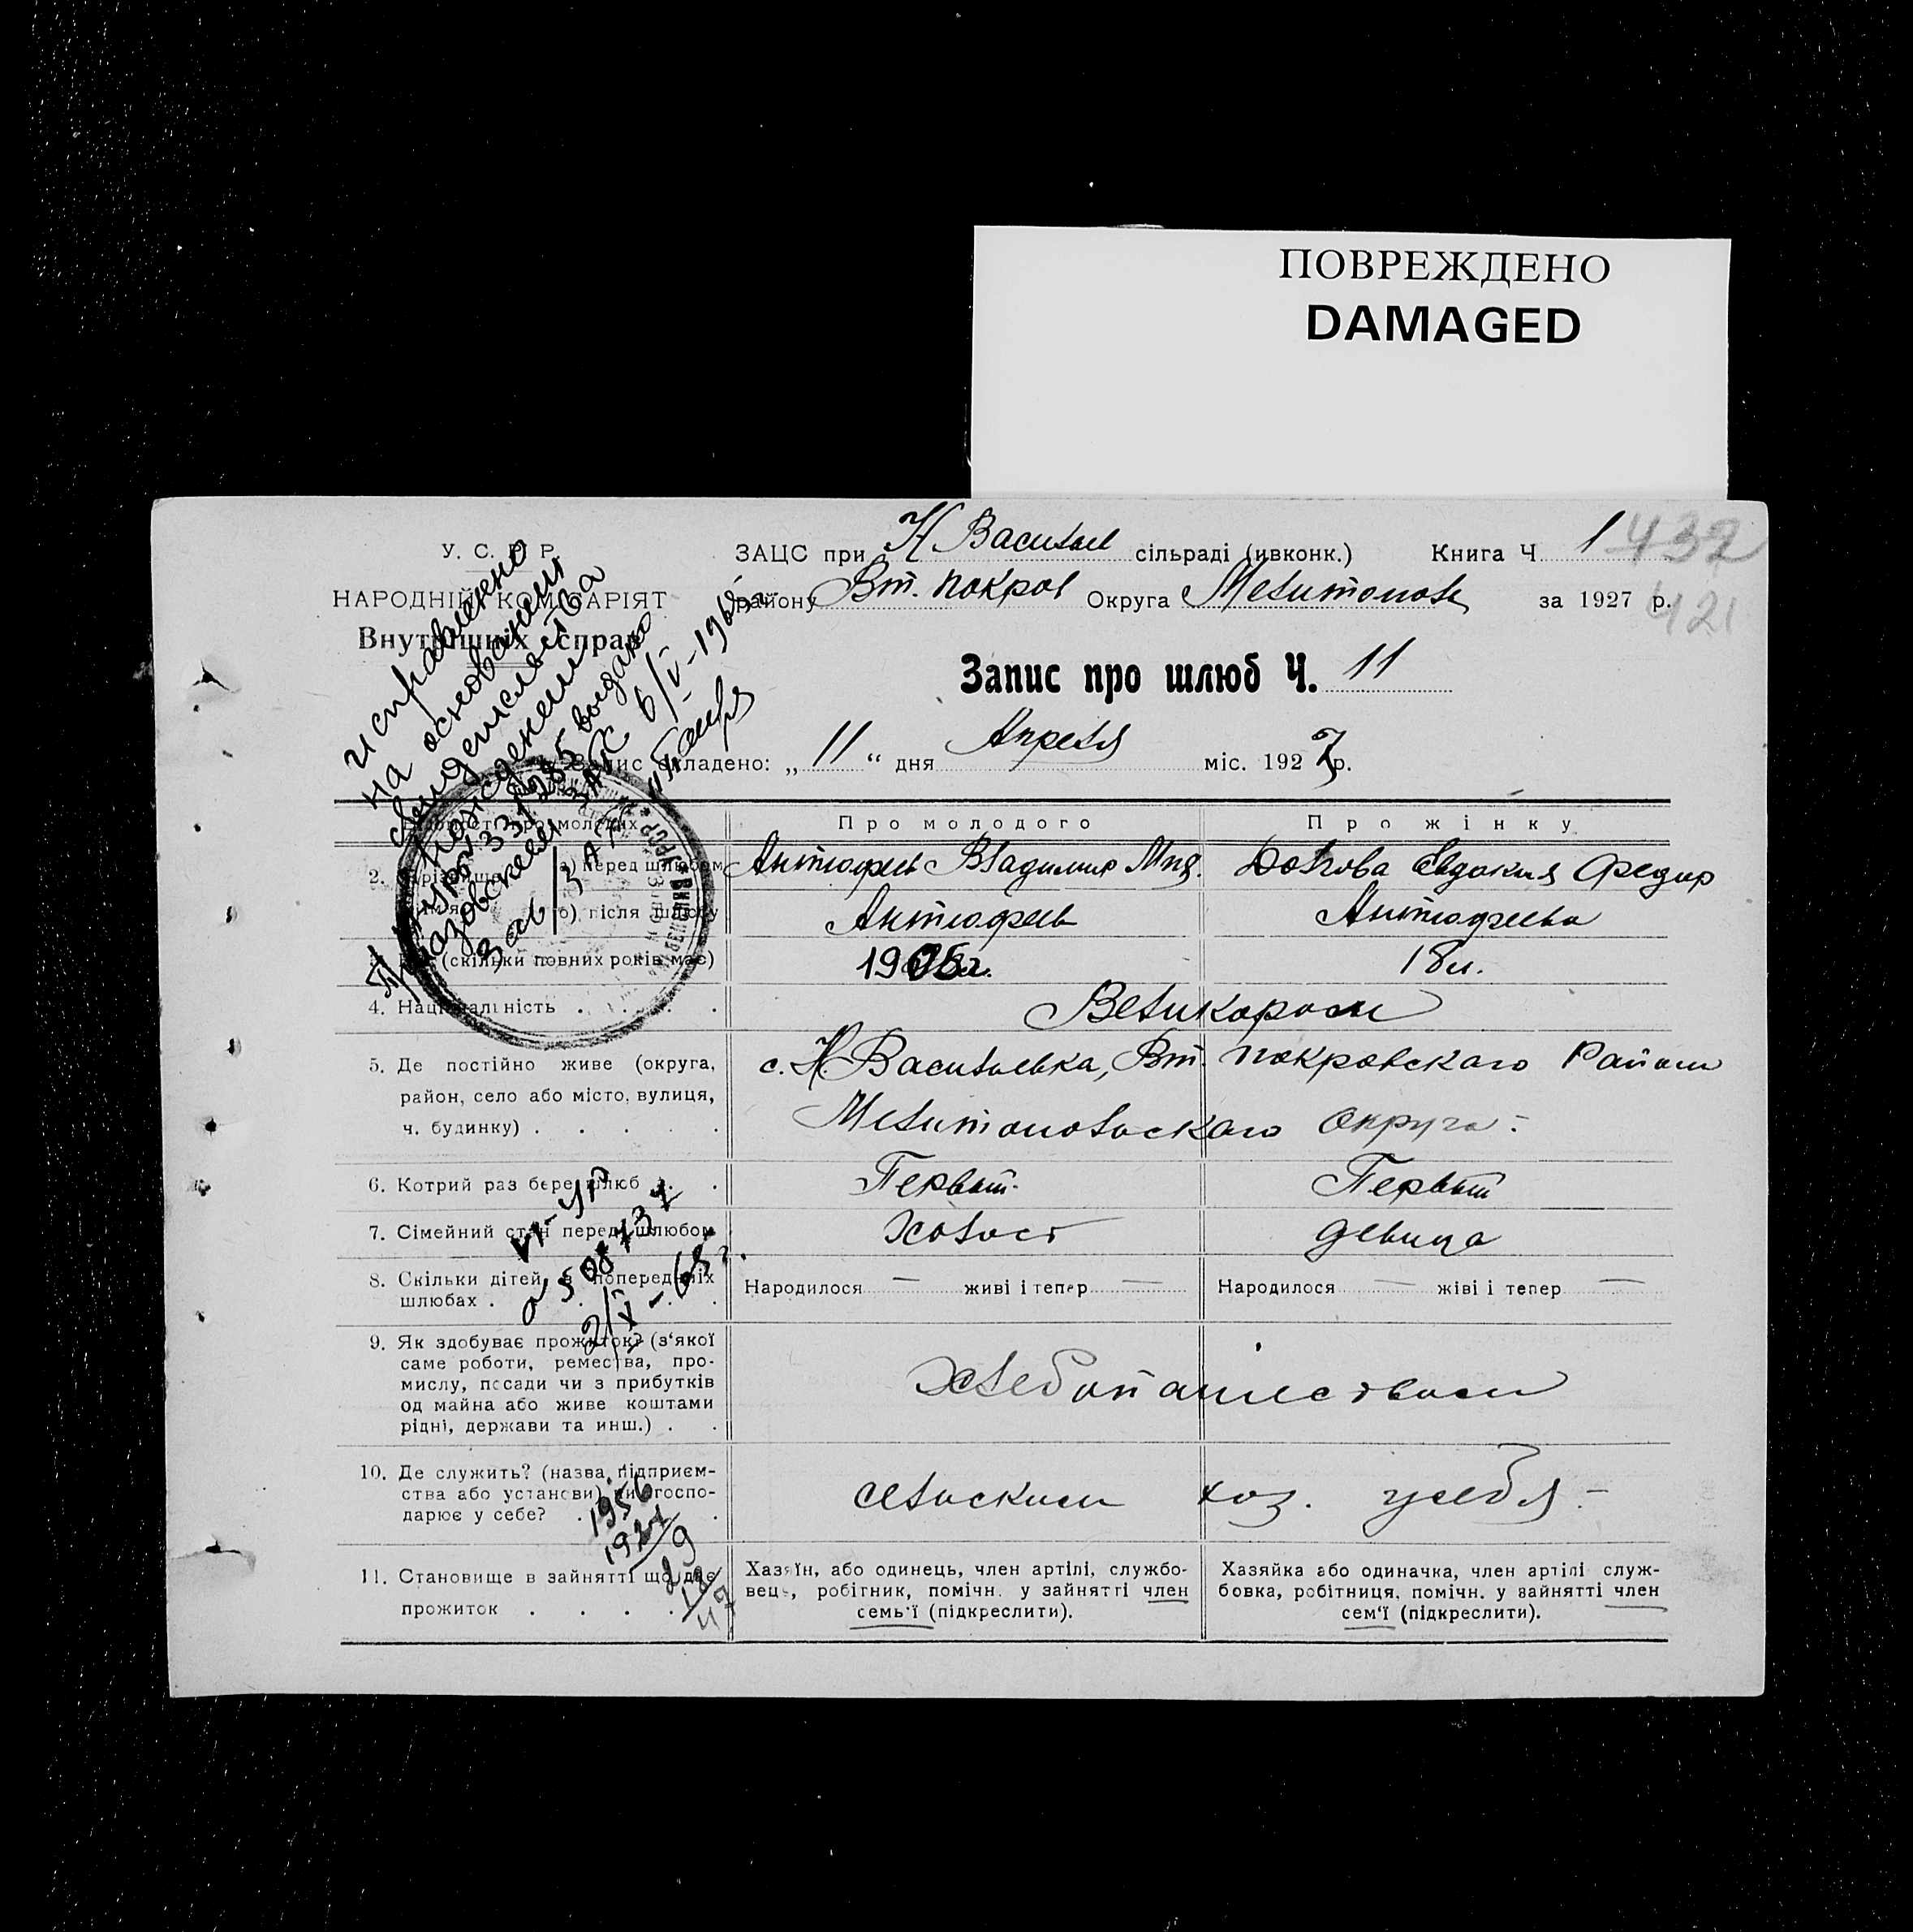 ПОВРЕЖДЕНО
DAMAGED
У. С. Р. Р.
НАРОДНІЙ КОМІСАРІЯТ
Внутрішніх справ
ЗАЦС при Н Васильев сільраді (ивконк.) Книга Ч. 1 432
району Вт. покров Округа Мелитополь за 1927 р. 421
Запис про шлюб Ч. 11
Запис складено: „ 11 “ дня Апреля міс. 1927 р.
исправлено
на основании
свидетельства
о рождении
выдано
Приазовским ЗАГС 6/V-1968г.
Зав ЗАГС
Про молодого Про жінку
2. Прізвище а) перед шлюбом Антюфеев Владимир Мих. Федор
ім'я б) після шлюбу Антюфеев Антюфеева
(скільки повних років має) 1908г. 18 л.
4. Національність Великороси
5. Де постійно живе (округа, с. Н. Васильевка, Вт. Покровскаго Района
район, село або місто, вулиця, Мелитопольскаго округа -
ч. будинку)
6. Котрий раз бере шлюб Первый Первый
7. Сімейний стан перед шлюбом холост девица
8. Скільки дітей в попередніх Народилося — живі і тепер — Народилося — жіві і тепер —
шлюбах
9. Як здобуває прожиток? (з‘якої
саме роботи, ремества, про-
мислу, посади чи з прибутків хлебопашеством
од майна або живе коштами
рідні, держави та инш.)
10. Де служить? (назва підприєм-
ства або установи) чи госпо- сельским хоз. у себя -
дарює у себе?
1956
1927
29
11. Становище в зайнятті що дає
прожиток
Хазяїн, або одинець, член артілі, службо-
вець, робітник, помічн. у зайнятті член
семь‘ї (підкреслити).
Хазяйка або одиначка, член артілі служ-
бовка, робітниця, помічн. у зайнятті член
сем‘ї (підкреслити).